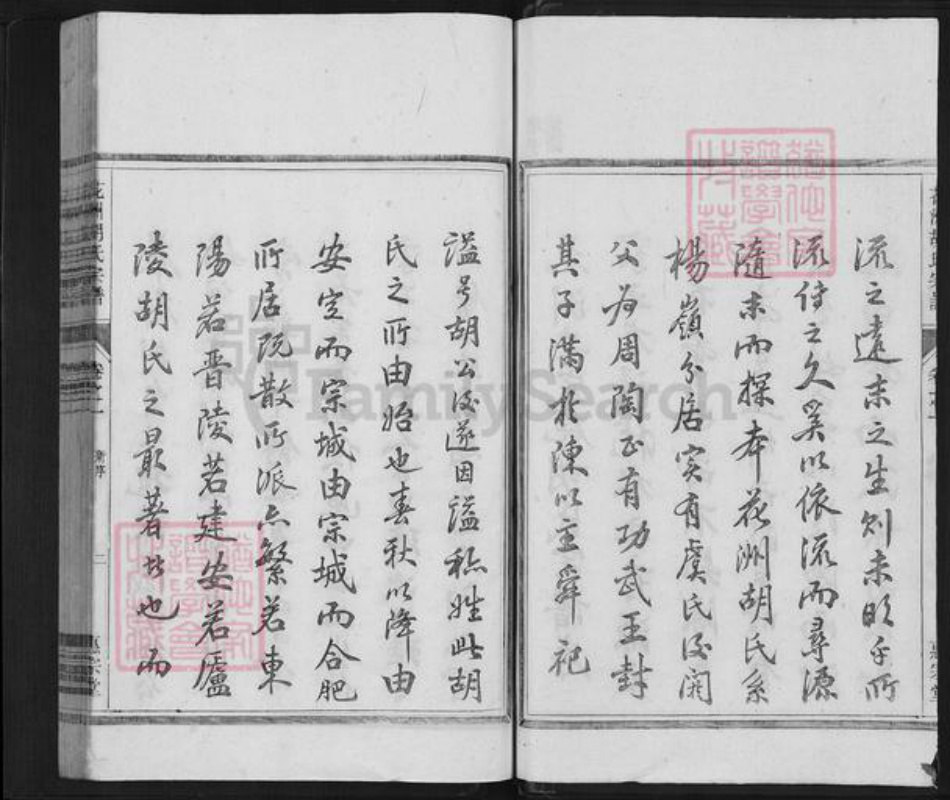 流之遠末之生則未明乎所
流傳之久奚以依流而尋源
隨末而探本花洲胡氏系
楊嶺分居实有虞氏後閼
父为周陶正有功武王封
其子滿於陳以主舜祀
諡号胡公後遂因諡称姓此胡
氏之所由始也春秋以降由
安定而宗城由宗城而合肥
所居既散所派亦繁若東
陽若晋陵若建安若廬
陵胡氏之最著者也而
花洲胡氏宗譜
惠宗堂
FamilySearch